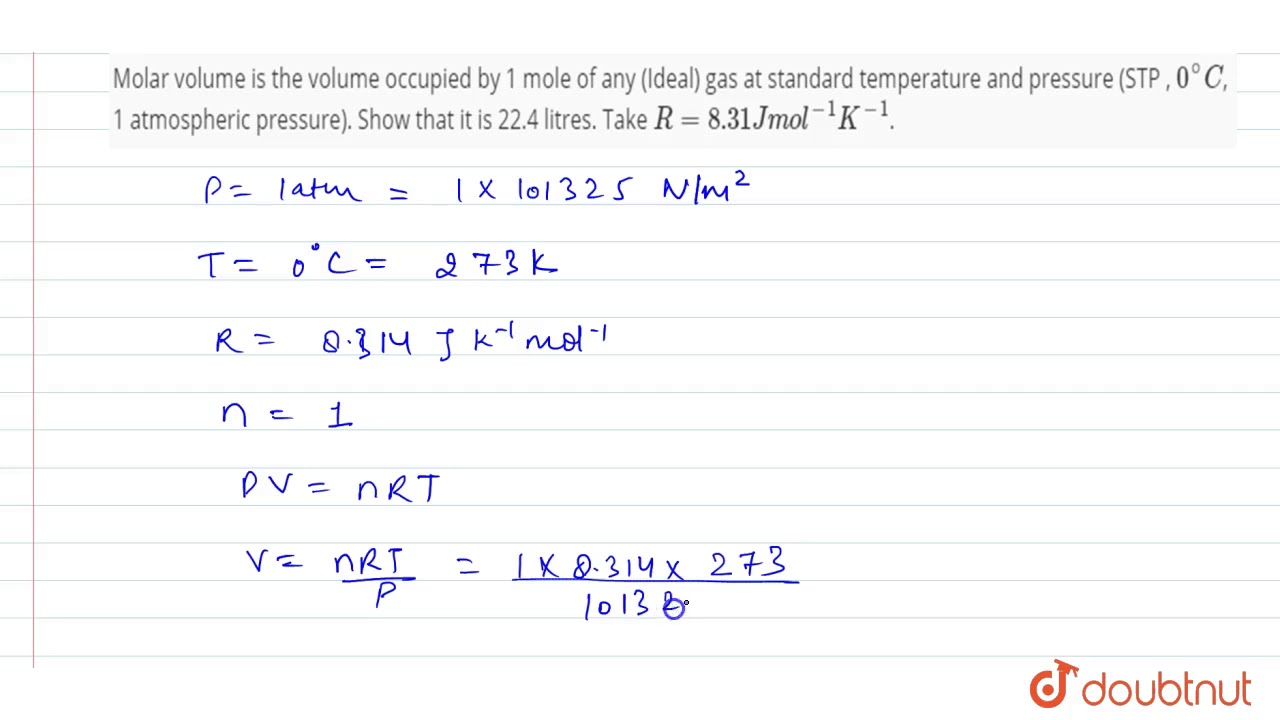 Molar volume is the volume occupied by 1 mole of any (Ideal) gas at standard temperature and pressure (STP , 0°C,
1 atmospheric pressure). Show that it is 22.4 litres. Take R = 8.31Jmol⁻¹K⁻¹.
P = 1atm = 1 × 101325 N/m²
T = 0°C = 273K
R = 8.314 J K⁻¹ mol⁻¹
n = 1
PV = nRT
V = nRT/P = 1 × 8.314 × 273 / 1013
doubtnut